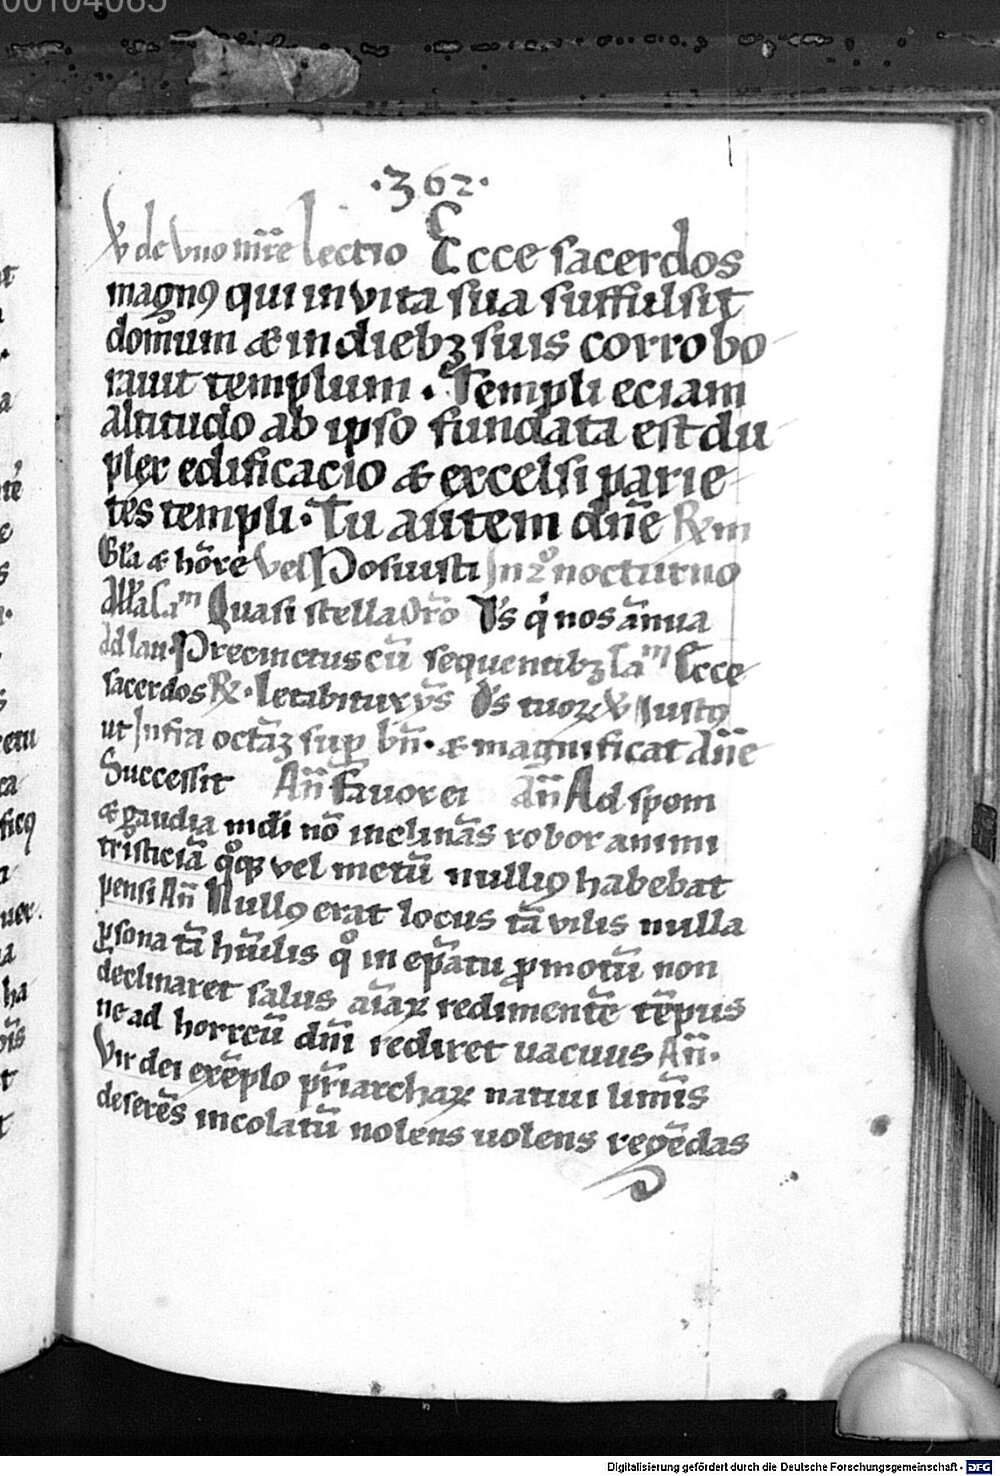 00104065
·362·
V de vno mr̄e lectio Ecce sacerdos
magnꝰ qui in vita sua suffulsit
domum & in diebꝫ suis corrobo
rauit templum . Templi eciam
altitudo ab ipso fundata est du
plex edificacio & excelsi parie
tes templi . Tu autem dn̄e ℟ in
Gl̄a & hōre vel Posuisti In 2° nocturno
All̄a Caᵐ Quasi stella Orō Ds̄ q nos ānua
ad lau Precinctus cū sequentibꝫ Caᵐ Ecce
sacerdos ℟ . letabitur ys̄ Ds̄ tuoꝝ V Iustꝰ
ut Infra octāꝫ sup bn̄ . & magnificat dn̄e
Successit An̄ Favorei An̄ Ad spem
& gaudia mdi nō inclinās robor animi
tristiciā qͦqꝫ vel metū nulliꝰ habebat
pensi An̄ Nullꝰ erat locus tā vilis nulla
ꝑsona tā hūilis qͦ in ep̄atu ꝓmotū non
declinaret salus aīaꝝ redimentē tēpus
ne ad horreū dn̄i rediret uacuus An̄ .
Vir dei exēplo pr̄iarchaꝝ natiui limīs
deserēs incolatū nolens uolens regēdas
Digitalisierung gefördert durch die Deutsche Forschungsgemeinschaft - DFG